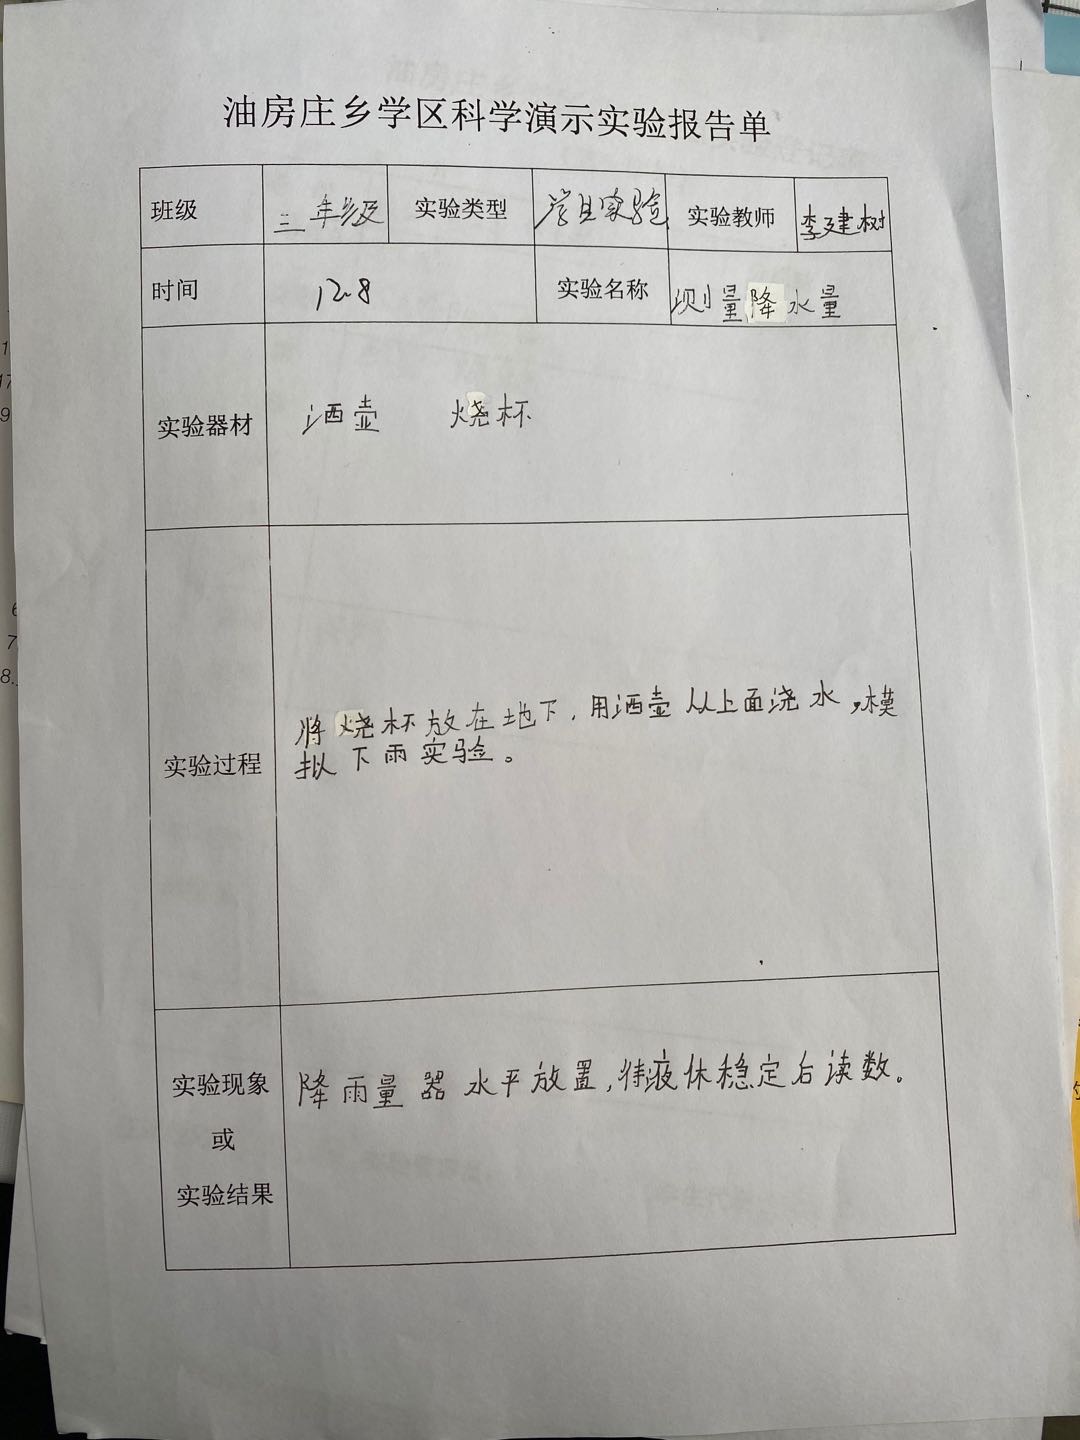 油房庄乡学区科学演示实验报告单
班级 三年级 实验类型 实验 实验教师 李建树
时间 12.8 实验名称 测量降水量
实验器材 洒壶 烧杯
将烧杯放在地下，用洒壶从上面浇水，模
实验过程 拟下雨实验。
实验现象 降雨量器水平放置，待液体稳定后读数。
或
实验结果